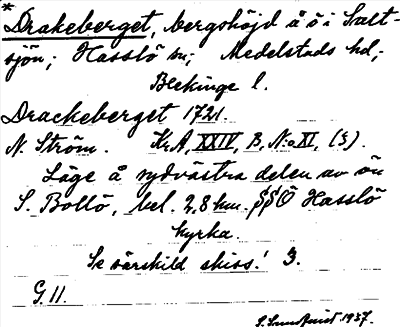 * Drakeberget, bergshöjd å ö i Salt-
sjön; Hasslö sn; Medelstads hd;
Blekinge l.
Drackeberget 1721.
N. Ström. Kr.A, XXIV, B, N:o XI, (§).
Läge å sydvästra delen av ön
S. Bollö, bel. 2,8 km. SSÖ Hasslö
kyrka.
Se särskild skiss! 3.
G.11.
S. Sundquist 1937.